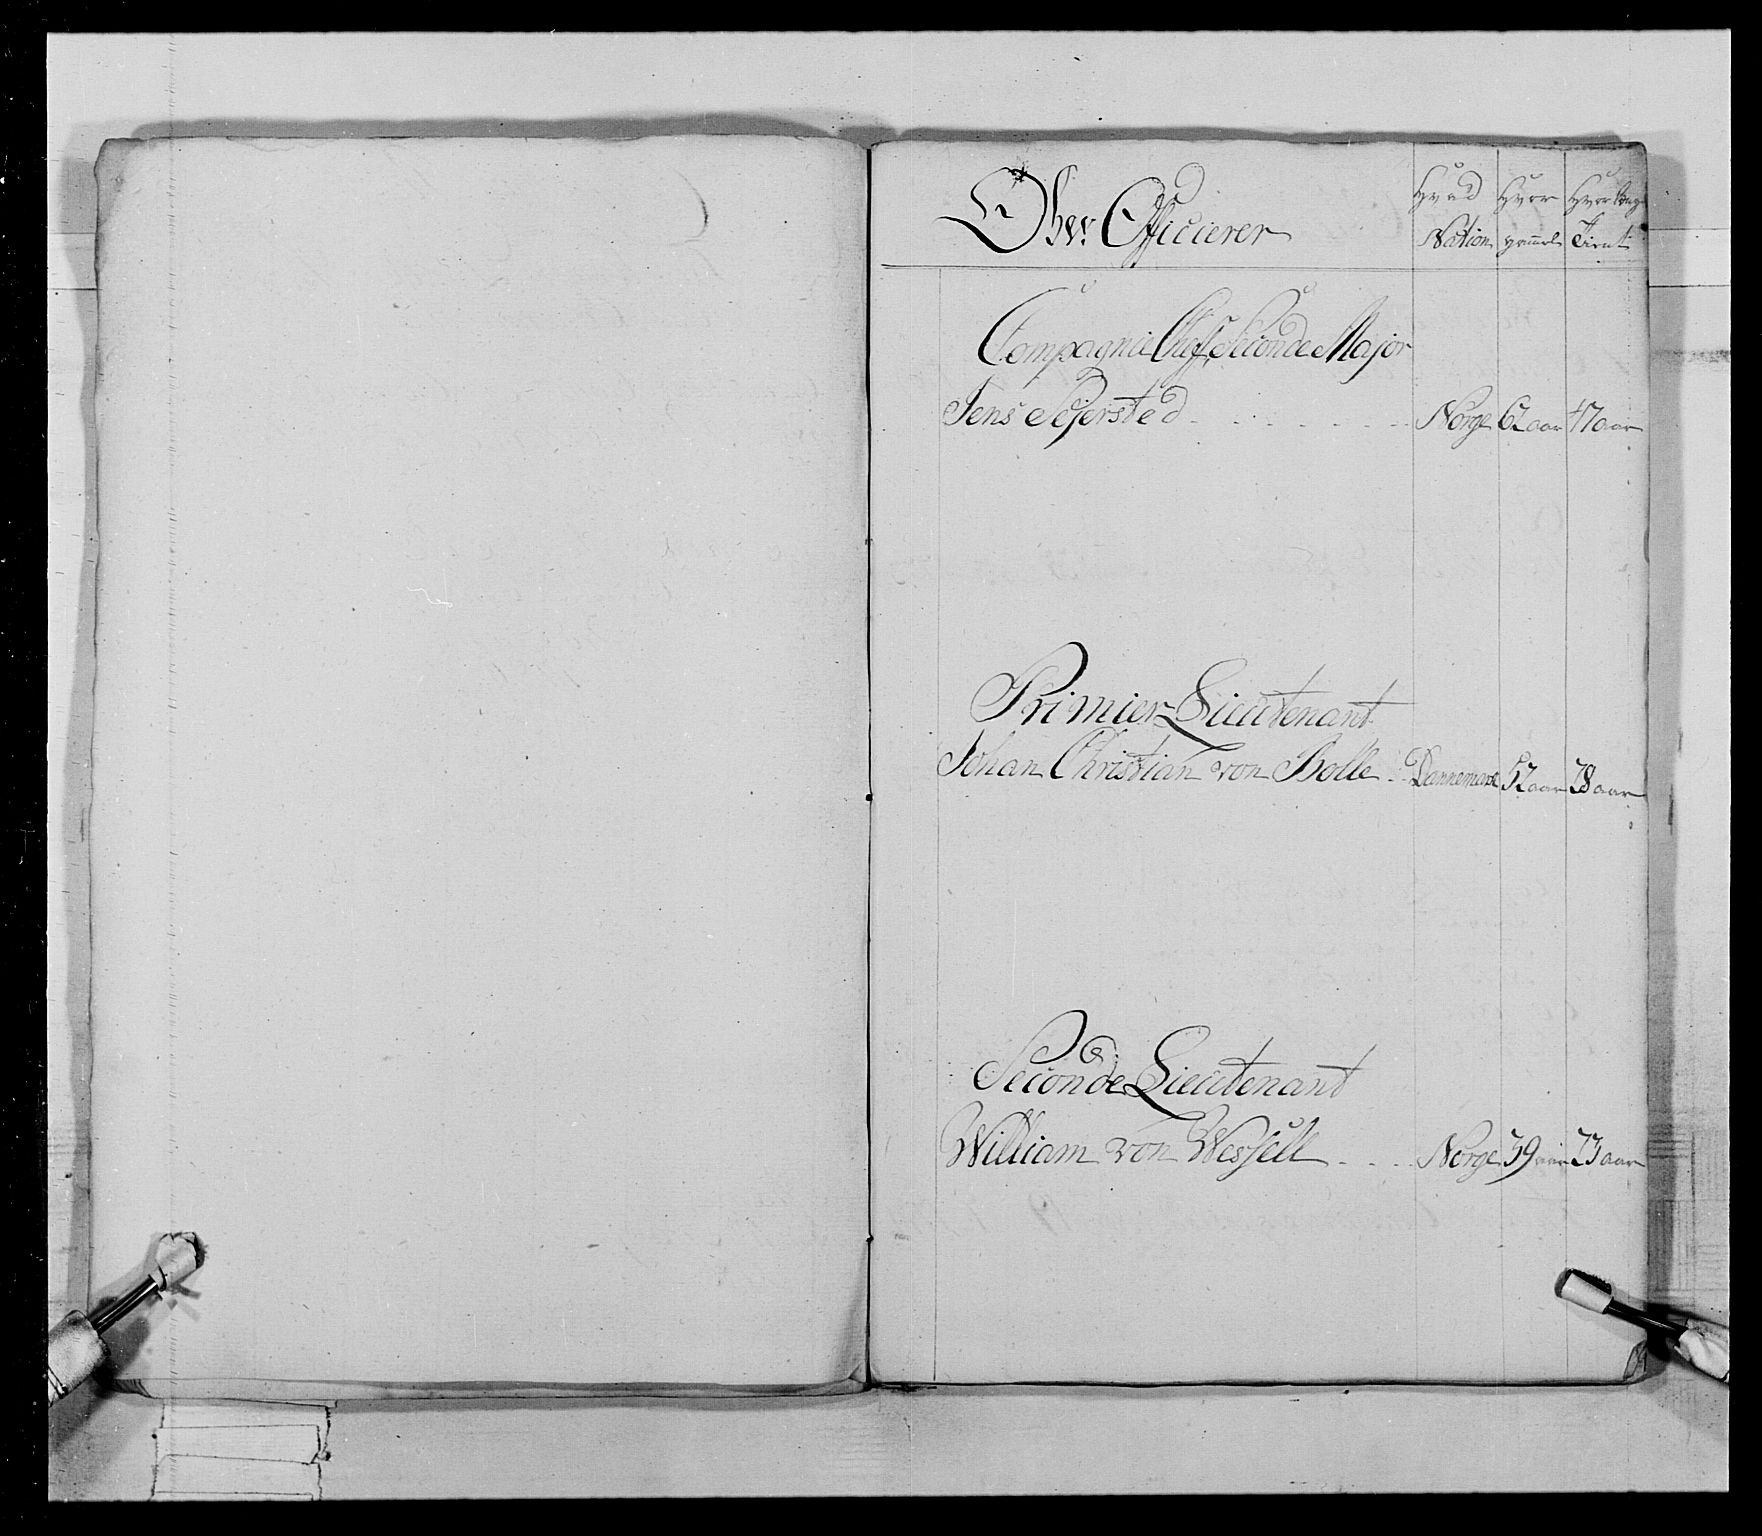 Ober Officierer
Hvad Nation
Hvor gammel
Hvor lenge Tient
Compagnie Cheff, Seconde Major
Jens Pejersted Norge 62 aar 47 aar
Primier Lieutenant
Johan Christian von Holle Dannemark 52 aar 28 aar
Seconde Lieutenant
William von Wessell Norge 39 aar 23 aar